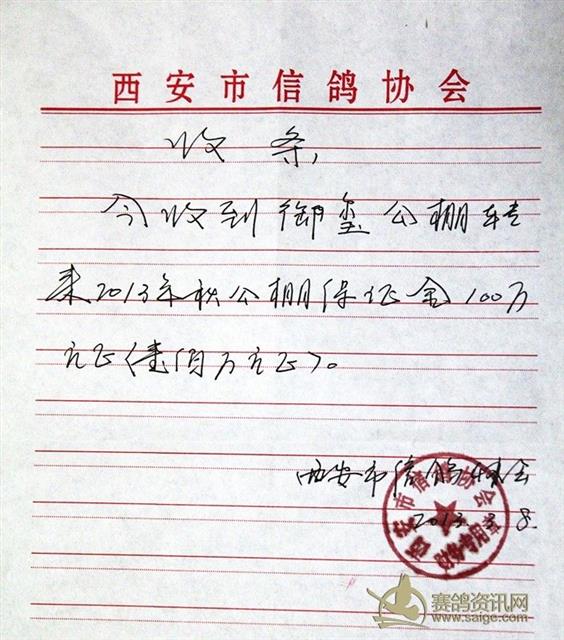 西安市信鸽协会
收条，
今收到御玺公棚转
来2013年秋公棚保证金100万
元正〈壹佰万元正〉。
西安市信鸽协会
2013.3.8.
西安市信鸽协会
赛鸽资讯网
www.saige.com